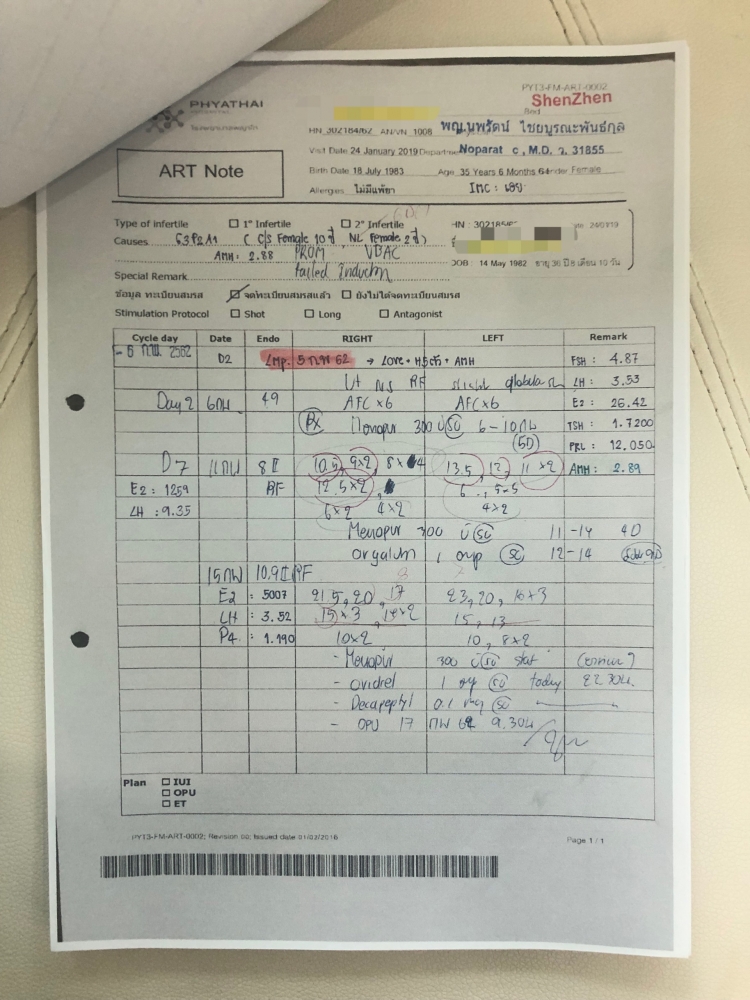 PYT3-FM-ART-0002
PHYATHAI
ShenZhen
Bed
HN 302184/62 AN/VN 1008 พญ.นพรัตน์ ไชยบูรณะพันธ์กุล
Visit Date 24 January 2019 Department Noparat c , M.D. ว. 31855
ART Note
Birth Date 18 July 1983 Age 35 Years 6 Months Gender Female
Allergies ไม่มีแพ้ยา
Type of Infertile ☐ 1° Infertile ☐ 2° Infertile HN : 24/01/19
Causes G3P2A1 ( C/S Female 10 ปี , NL Female 2 ปี )
AMH : 2.88 PROM VBAC DOB : 14 May 1982 อายุ 36 ปี 8 เดือน 10 วัน
failed Induction
Special Remark
ข้อมูล ทะเบียนสมรส ☑ จดทะเบียนสมรสแล้ว ☐ ยังไม่ได้จดทะเบียนสมรส
Stimulation Protocol ☐ Shot ☐ Long ☐ Antagonist
Cycle day Date Endo RIGHT LEFT Remark
6 กพ 2562 D2 LMP. 5 กพ 62 FSH : 4.87
Ut NS RF LH : 3.53
Day 2 6 กพ 49 AFC x 6 AFC x 6 E2 : 26.42
Rx Menopur 300 U SC 6 - 10 กพ TSH : 1.7200
(5D) PRL : 12.050
D7 11 กพ 8 10.5, 9x2, 8x4 13.5, 12, 11 x2 AMH : 2.89
E2 : 1259 RF 12.5 x 2 6 , 5.5
LH : 9.35 6x2 4x2 4x2
Menopur 300 U SC 11 - 14 4D
Orgalutan 1 amp SC 12 - 14
15 กพ 10.9 RF
E2 : 5007 21.5, 20, 17 23, 20, 16 x 3
LH : 3.52 15 x 3, 14 x 2 15, 13
P4 : 1.190 10 x 2 10, 8 x 2
- Menopur 300 U SC stat
- Ovidrel 1 SC today 22.30น.
- Decapeptyl 0.1 mg SC
- OPU 17 กพ 62 9.30น
Plan ☐ IUI
☐ OPU
☐ ET
PYT3-FM-ART-0002; Revision 00; Issued date 01/02/2016
Page 1 / 1